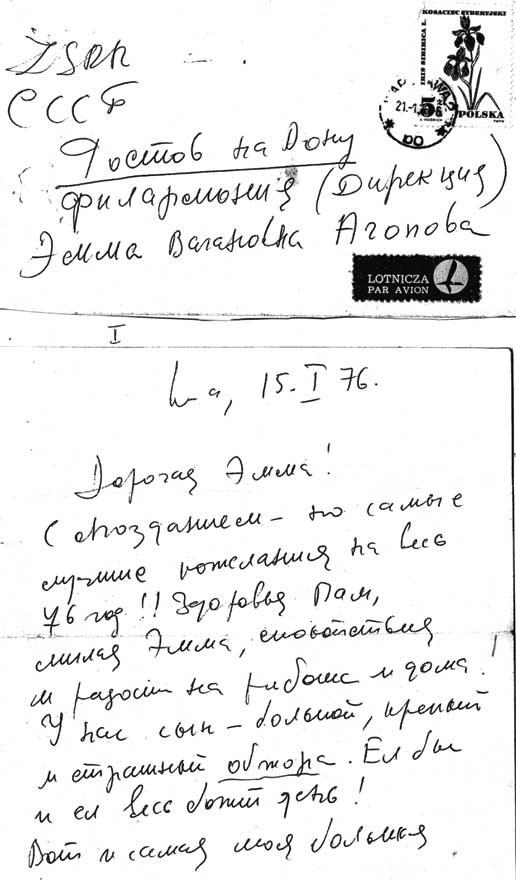 KOSACIEC SYBERYJSKI
IRIS SIBIRICA L.
5
POLSKA
21.-1
ŻSRR
СССР
Ростов на Дону
филармония (Дирекция)
Эмма Вагановна Агопова
LOTNICZA
PAR AVION
I
15. I 76.
Дорогая Эмма!
С опозданием – но самые
лучшие пожелания на весь
76 год!! Здоровья Вам,
милая Эмма, спокойствия
и радости на работе и дома!
У нас сын – большой, крепкий
и страшный обжора. Ел бы
и ел весь божий день!
Вот и самая моя большая